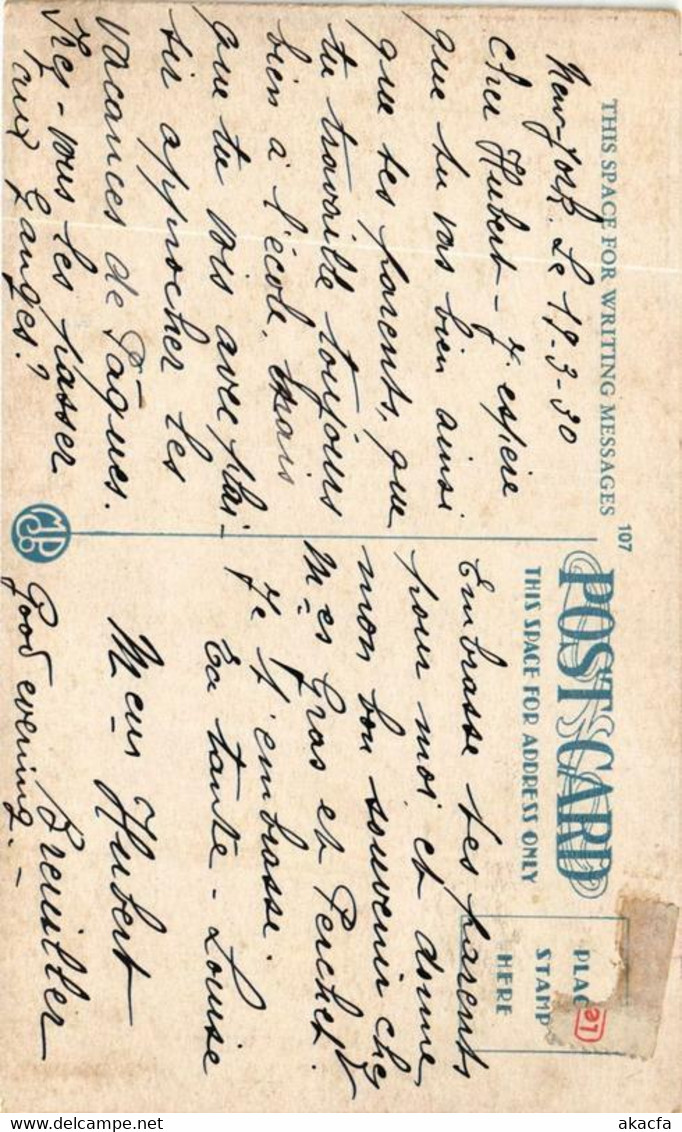 THIS SPACE FOR WRITING MESSAGES
New-York. Le 19-3-30
Cher Hubert - J'espère
que tu vas bien ainsi
que tes parents, que
tu travaille toujours
bien à l'école, mais
que tu vois avec plai-
sir approcher les
vacances de Pâques.
Irez-vous les passer
aux Granges?
107
POST CARD
THIS SPACE FOR ADDRESS ONLY
PLACE
STAMP
HERE
61
Embrasse tes parents
pour moi et donne
mon bon souvenir chez
Mes Gros et Perchet.
Je t'embrasse.
Ta tante - Louise
Meur Hubert
Good evening. -
www.delcampe.net
akacfa